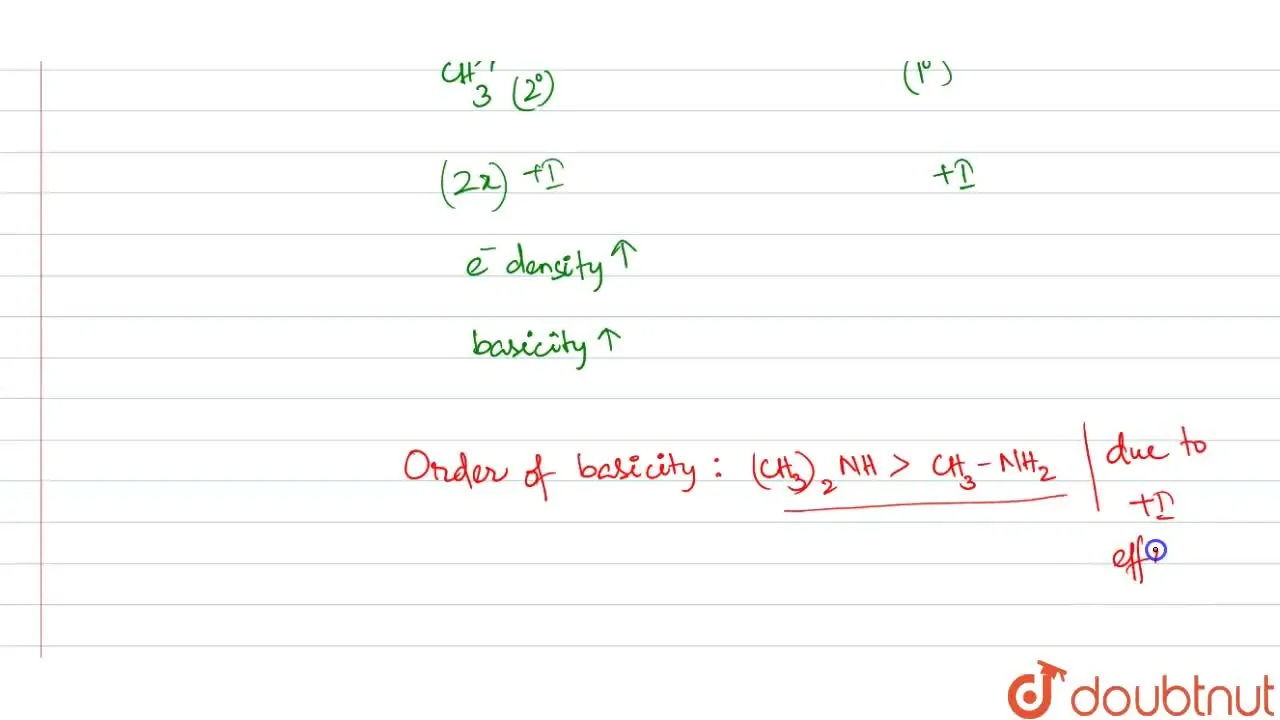 CH3 (2°) (1°)
(2x) +I +I
e⁻ density ↑
basicity ↑
Order of basicity : (CH3)2 NH > CH3-NH2 | due to
+I
doubtnut